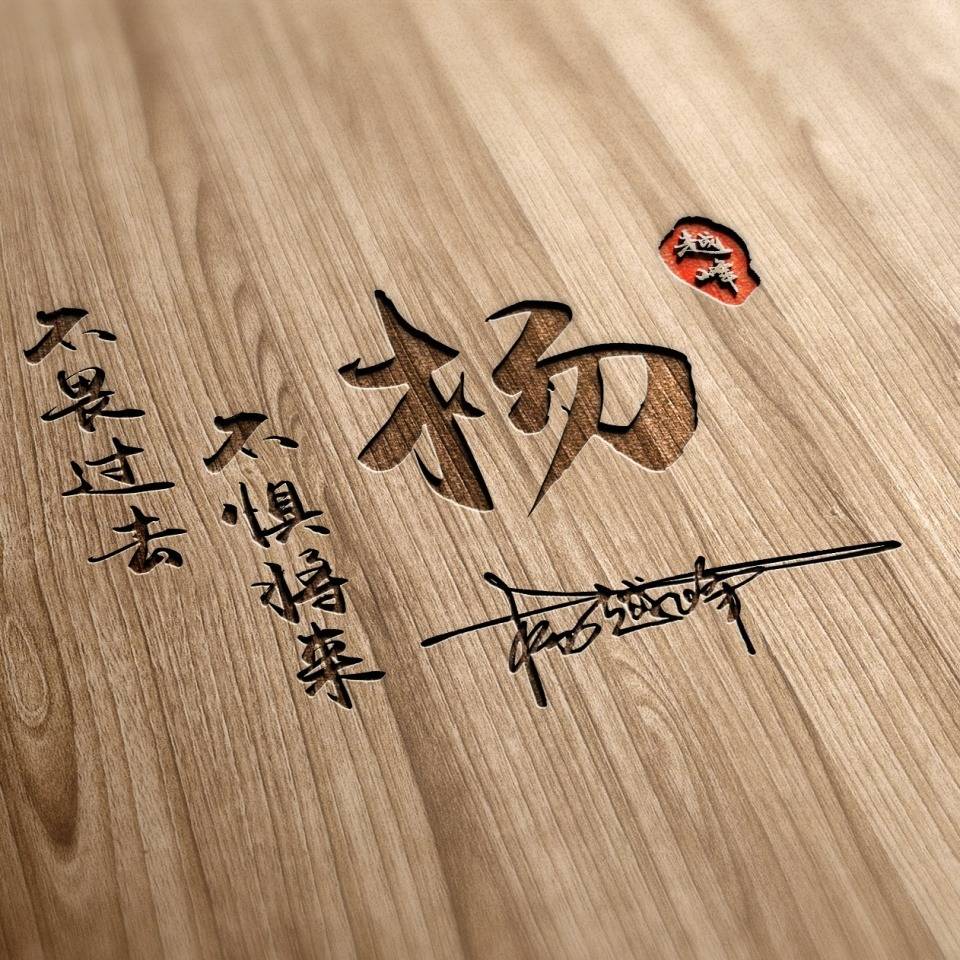 不畏过去
不惧将来
杨
越峰
杨越峰